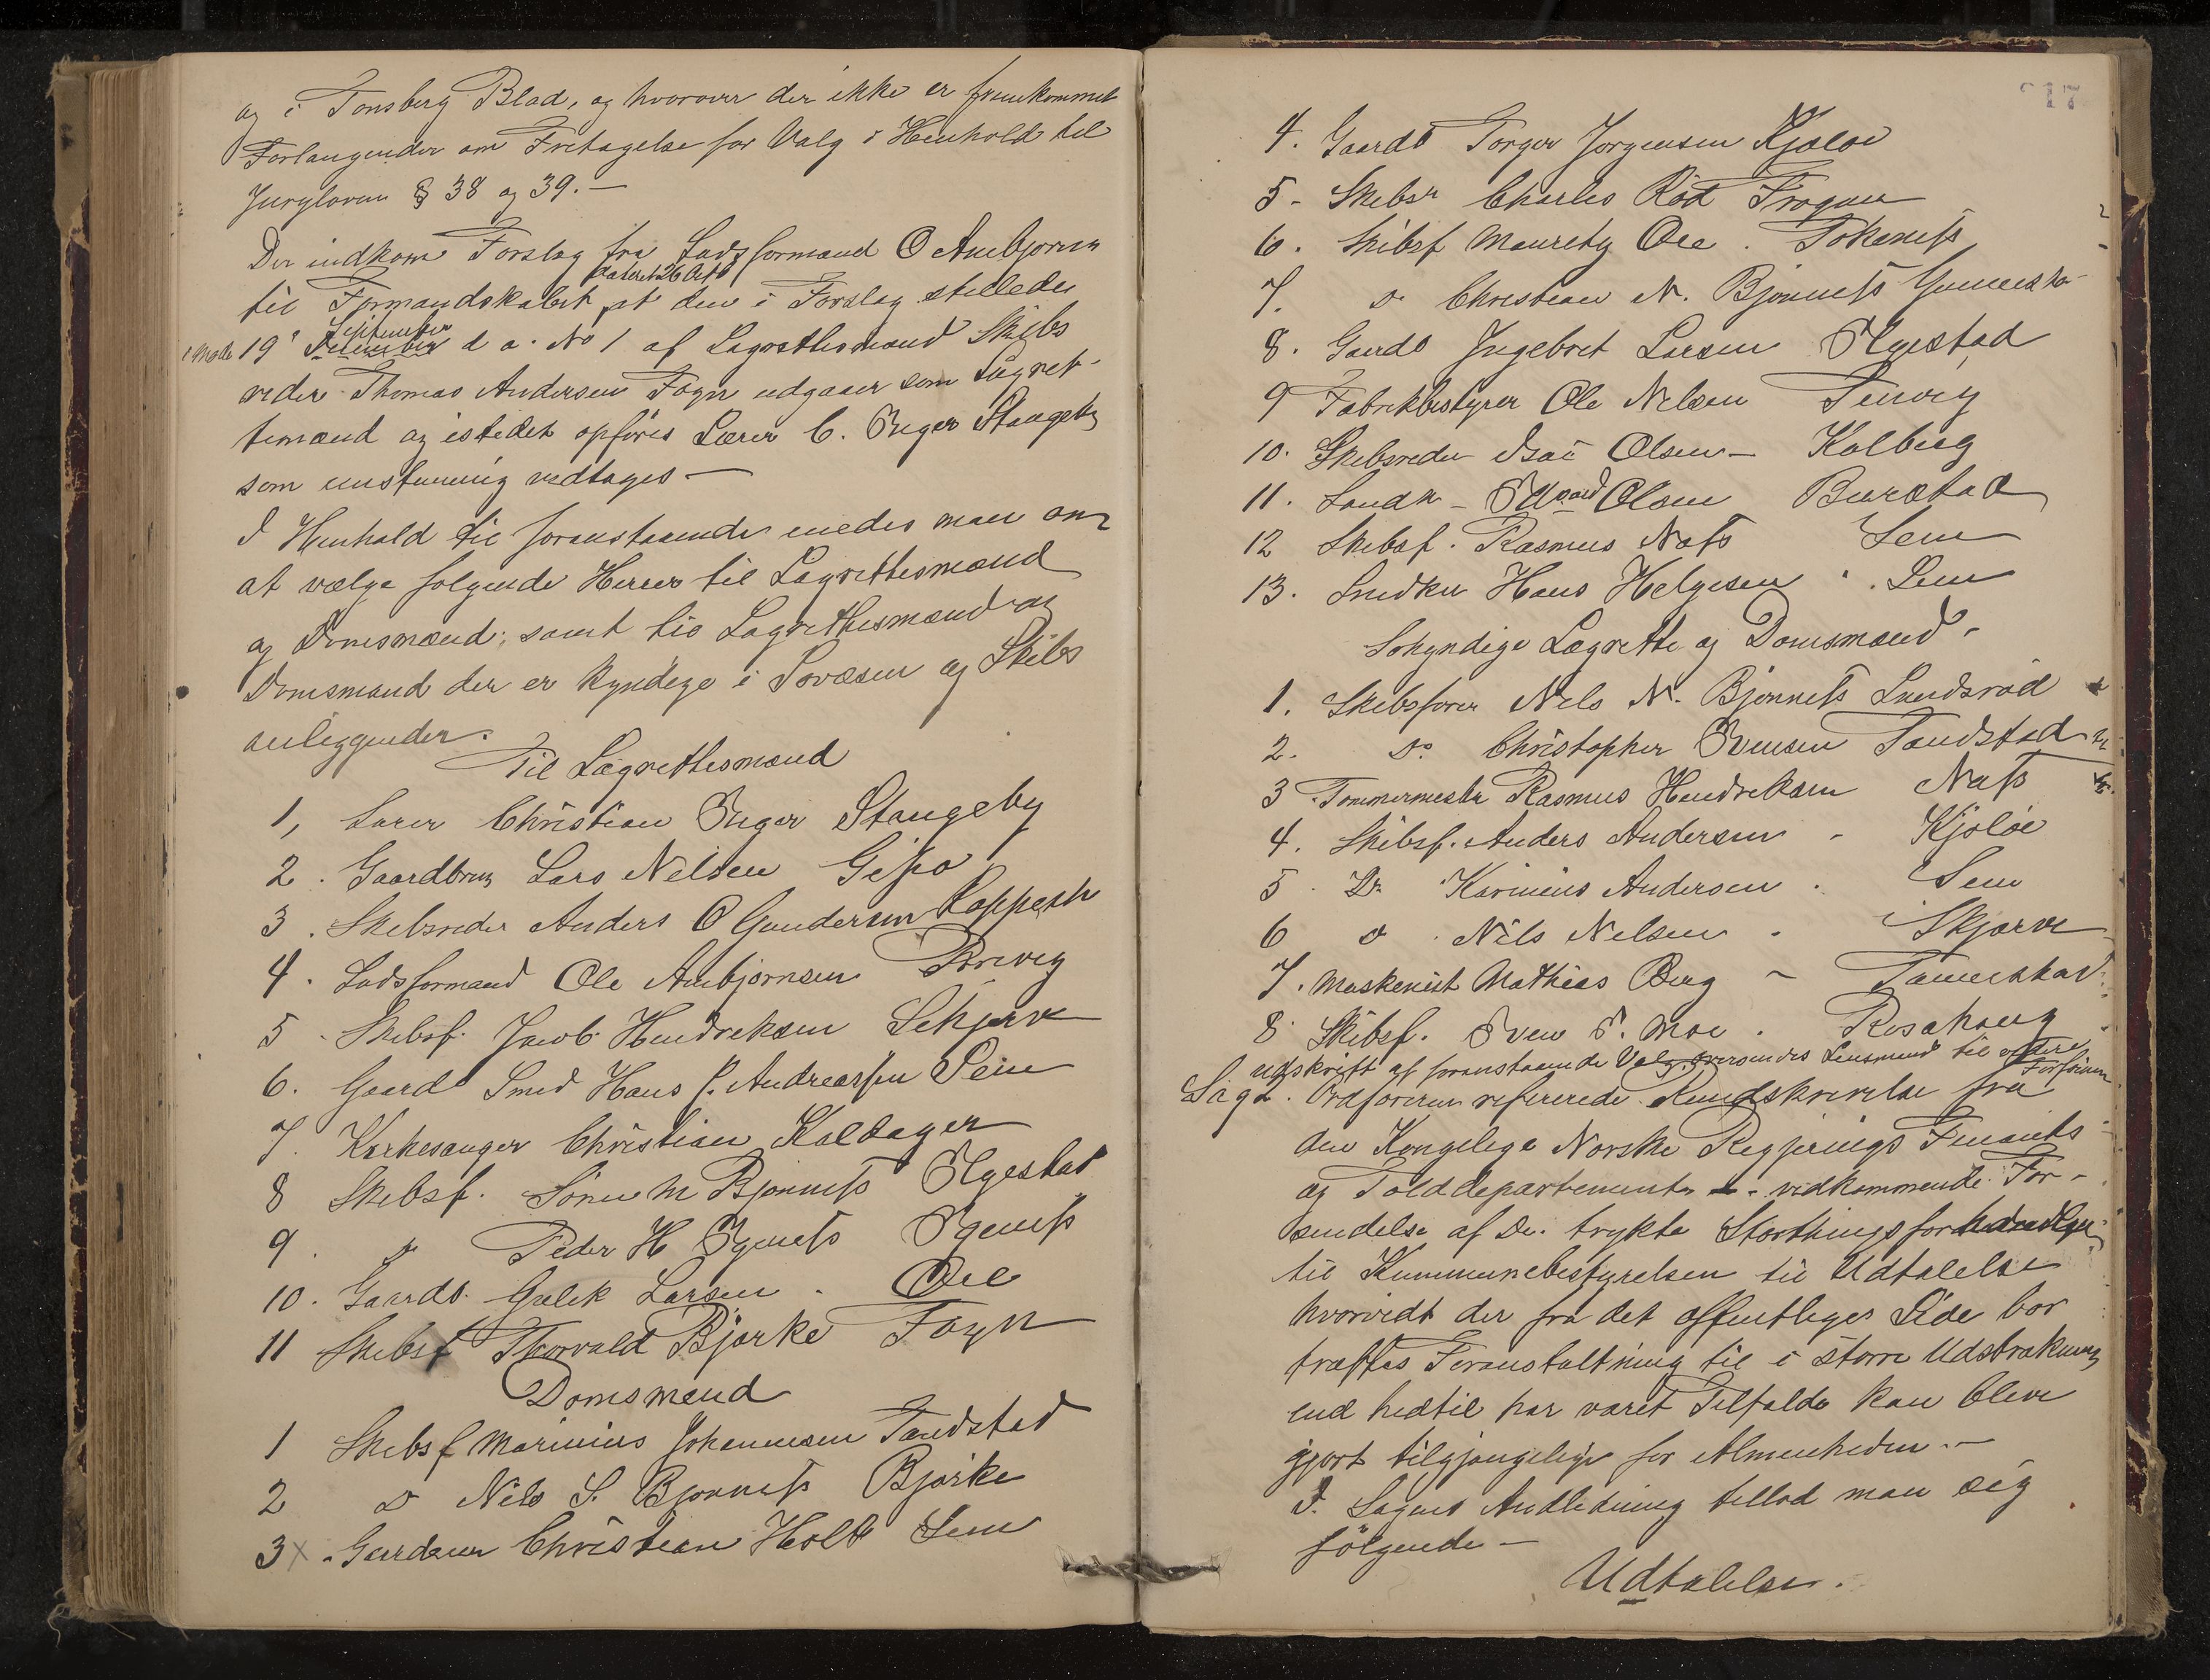 og i Tonsberg Blad, og hvorover der ikke er fremkommet
Forlangender om Fritagelse for Valg i Henhold til
Juryloven § 38 og 39. —
Der indkom Forslag fra Lodsformand O Anbjornsen
dateret 26 Oct
til Formandskabet at den i Forslag stilledes
September
i Mode 19 d a. No 1 af Lagrettesmænd Skibs
reder Thomas Andersen Föyn udgaaer som Lagret-
temænd og istedet opföres Lærer C. Unger Stangeby
som enstemmig vedtages —
I Henhold til foranstaaende enedes man om
at vælge folgende Herrer til Lagrettesmænd
og Domsmænd, samt tio Lagrettesmænd og
Domsmænd der er kyndige i Sovæsen og Skibs
anliggender.
Til Lagrettesmænd
1, Lærer Christian Unger Stangeby
2. Gaardbrug Lars Nelsen Gipö
3. Skibsreder Anders O Gundersen
4. Lodsformand Ole Anbjornsen
5. Skibsf. Jacob Hendriksen Skjerve
6. Gaardb Smed Hans J. Andreassen Sem
7. Kirkesanger Christian Kaldager
8 Skibsf. Sören M Bjonness Ølgestad
9. Do Peder H Øgeness Øgeness
10. Gaardb. Gulik Larsen. Oee
11 Skibsf Thorvald Bjerke Foyn
Domsmænd
1 Skibsf Marinius Johannesen Tandstad
2 Do Nils S. Bjonness Bjerke
3 x. Gardener Christian Holt Sem
217
4. Gaardb Torger Jorgensen Kjoloe
5 - Skibsr Charles Röd
6. Skibsf Mauritz Oee. Tokeness
7. Do Christian N. Bjonness
8. Gaardb Ingebret Larsen Ølgestad
9 Fabrikbestyrer Ole Nelsen
10. Skibsreder Isai Olsen — Kalberg
11. Landh - Edvard Olsen Burstad
12 Skibsf. Rasmus Næss Sem
13. Snedker Hans Helgesen. Sem
Sokyndige Lagrette og Domsmænd -
1. Skibsforer Nils N. Bjonness Sundsröd
2. Do Christopher Svensen Tandstad
3. Tommermester Rasmus Hendreksen Næss
4. Skibsf. Anders Andersen - Kjölöe
5. Do Karinius Andersen. Sem
6 Do. Nils Nelsen. Skjærve
7. Maskenist Mathias Berg -
8. Skibsf. Sven S. Moe. Rosahaug
Udskrift af foranstaaende Valg oversendes Lensmand til videre
Forföien
Sag 2. Ordforeren refererede Rundskrivelse fra
den Kongelige Norske Regjerings Finants
og Tolddepartement - vedkommende For-
sendelse af De. trykte Storthingsforhandlger
til Kummunebestyrelsen til Udtalelse
hvorvidt der fra det offentliges Side bor
træffes Foranstaltning til i større Udstrækning
end hedtil har været Tilfælde kan blive
gjort tilgjængelige for Almenheden. —
I Sagens Andledning tillod man sig
fölgende —
Udtalelse.